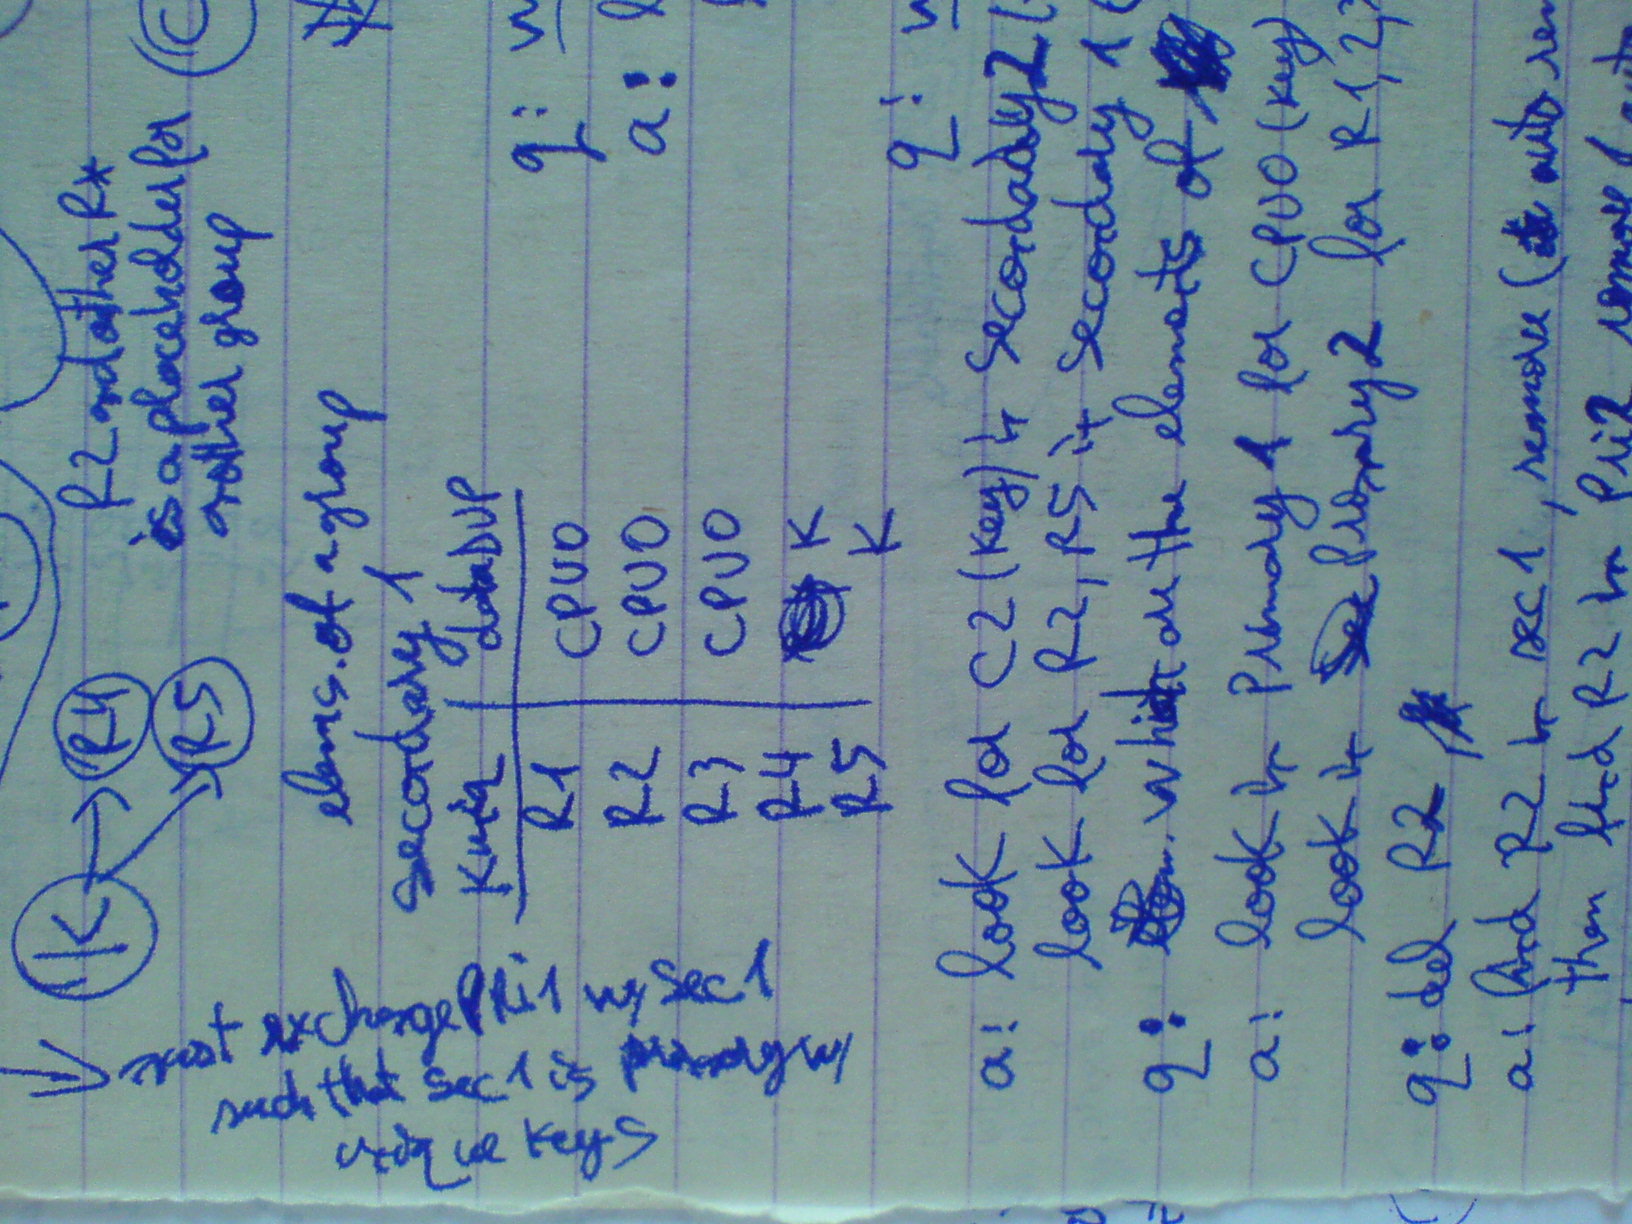 K
R4
R5
R2 and other R*
is a placeholder for
another group
C
must exchange Pri1 w/ Sec1
such that Sec1 is primary w/
unique keys
elems. of a group
secondary 1
Kuniq dataDUP
R1 CPU0
R2 CPU0
R3 CPU0
R4 K
R5 K
q:
a:
q:
a: look for C2 (key) in secondary2
look for R2, R5 in secondary 1
q: what are the elements of
a: look in Primary 1 for CPU0 (key)
look in Primary2 for R1,2,
q: del R2
a: find R2 in sec1, remove (auto
then find R2 in Pri2 remove